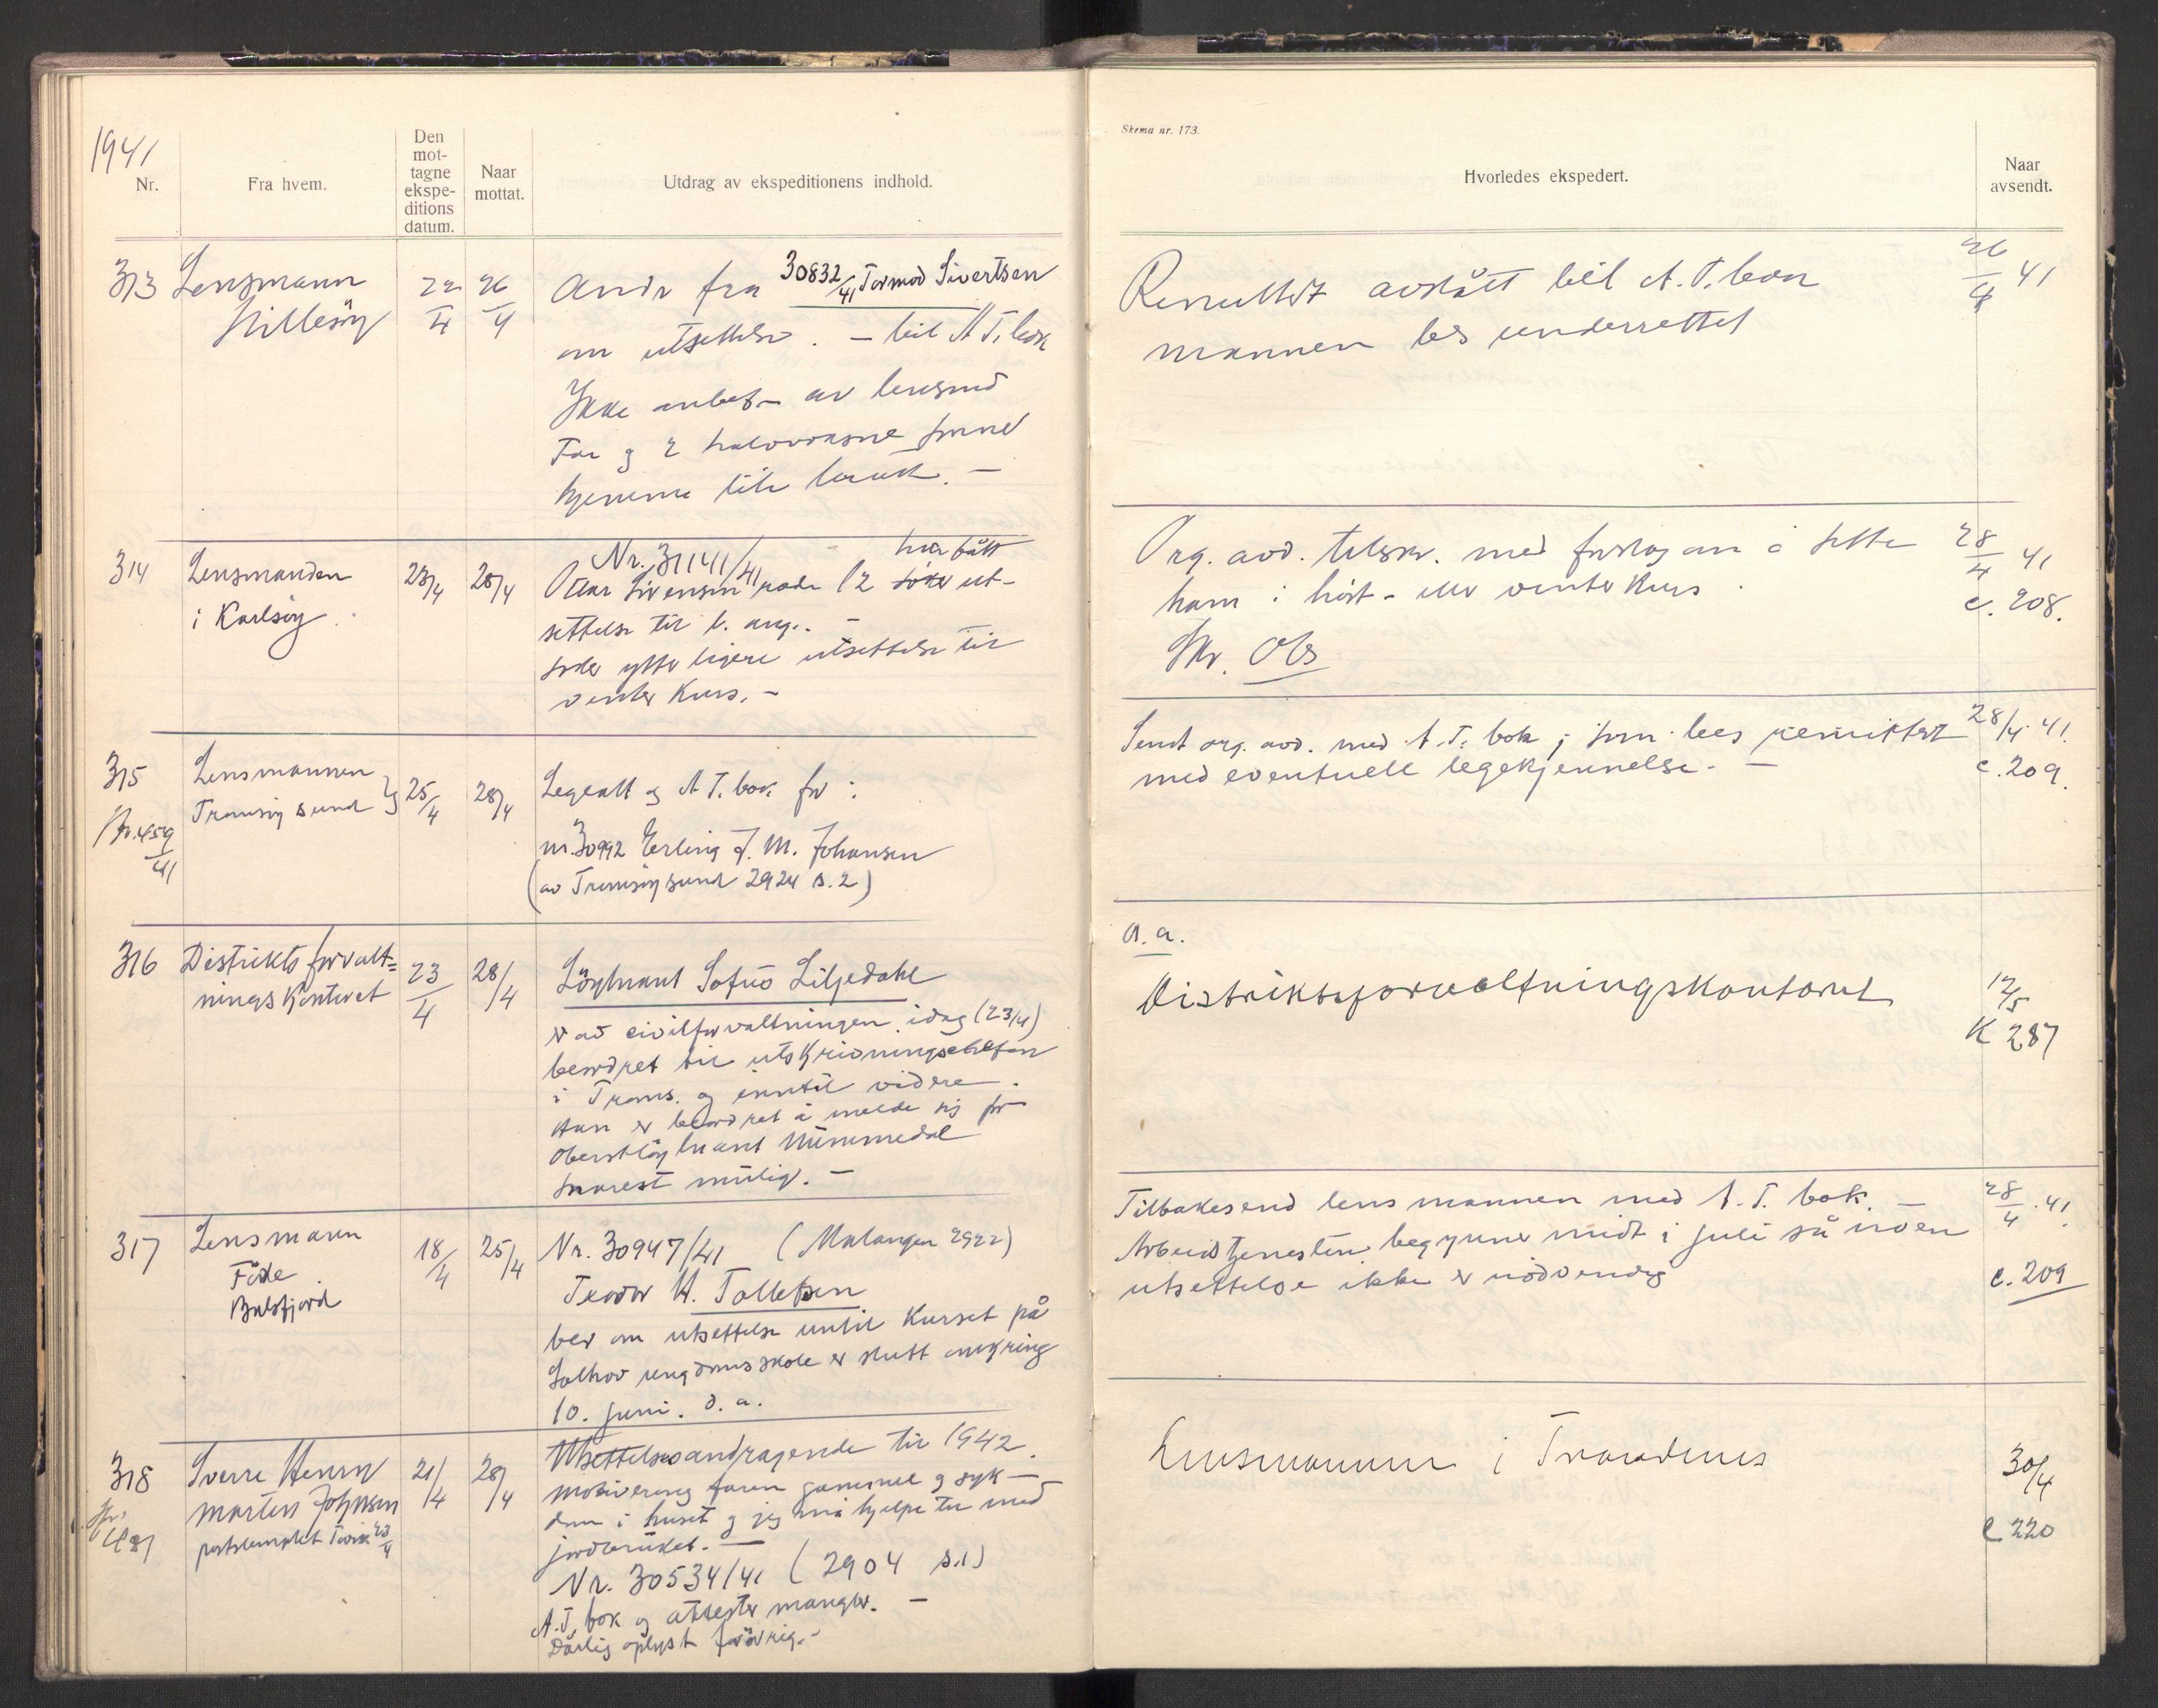 1941
Nr.
Fra hvem.
Den
mot-
tagne
ekspe-
ditions
datum.
Naar
mottat.
Utdrag av ekspeditionens indhold.
313 Lensmann
Hillesøy
22/4
26/4
Andr fra 30832/41 Tormod Sivertsen
om utsettelse. - bil A.T. bok
Ikke anbef. av lensmd
Far og 2 halvvoksne
hjemme
314 Lensmanden
i Karlsøy.
23/4
28/4
Nr. 31141/41 har fått
Ottar Sivensen rode 12 søkt ut-
settelse til
søker ytterligere utsettelse til
vinter kurs. -
315 Lensmannen
Tromsøysund
Jfr. 459/41
25/4
28/4
Legeatt og A.T. bok for:
nr. 30992 Erling J. M. Johansen
(av Tromsøysund 2924 s. 2)
316 Distriktsforvalt=
ningskontoret
23/4
28/4
Löytnant Sofus Liljedahl
er av civilforvaltningen idag (23/4)
beordret til utskrivningschefen
i Troms. og inntil videre.
Han er beordret å melde sig for
Oberstlöytnant Mimmedal
snarest mulig. -
317 Lensmann
Balsfjord
18/4
25/4
Nr. 30947/41 (Malangen 2922)
Teodor H. Tollefsen
ber om utsettelse inntil kurset på
Solhov ungdomsskole er slutt omkring
10. juni. d. a.
318 Sverre Henry
Martin Johnsen
poststemplet 23/4
21/4
28/4
Utsettelsesandragende til 1942.
Motivering faren gammel og syk-
dom i huset og jeg må hjelpe til med
jordbruket. -
Nr. 30534/41 (2904 s.1)
A.T. bok og attester mangler. -
Dårlig oplyst forövrig. -
Skema nr. 173.
Hvorledes ekspedert.
Naar
avsendt.
Resultat avslått bil A.T. bok
mannen bes underrettet
26/4 41
Org. avd. tilskr. med forslag om å sette
ham i höst- eller vinterkurs.
Skr. Obs
28/4 41
c. 208.
Sendt org. avd. med A.T. bok, som bes remittert
med eventuell legekjennelse. -
28/4. 41.
c. 209.
a. a.
Distriktsforvaltningskontoret
12/5
K 287
Tilbakesend lensmannen med A.T. bok. -
Arbeidstjenesten begynner midt i juli så noen
utsettelse ikke er nödvendig
28/4. 41.
c. 209
Lensmannen i Trondenes
30/4
c 220